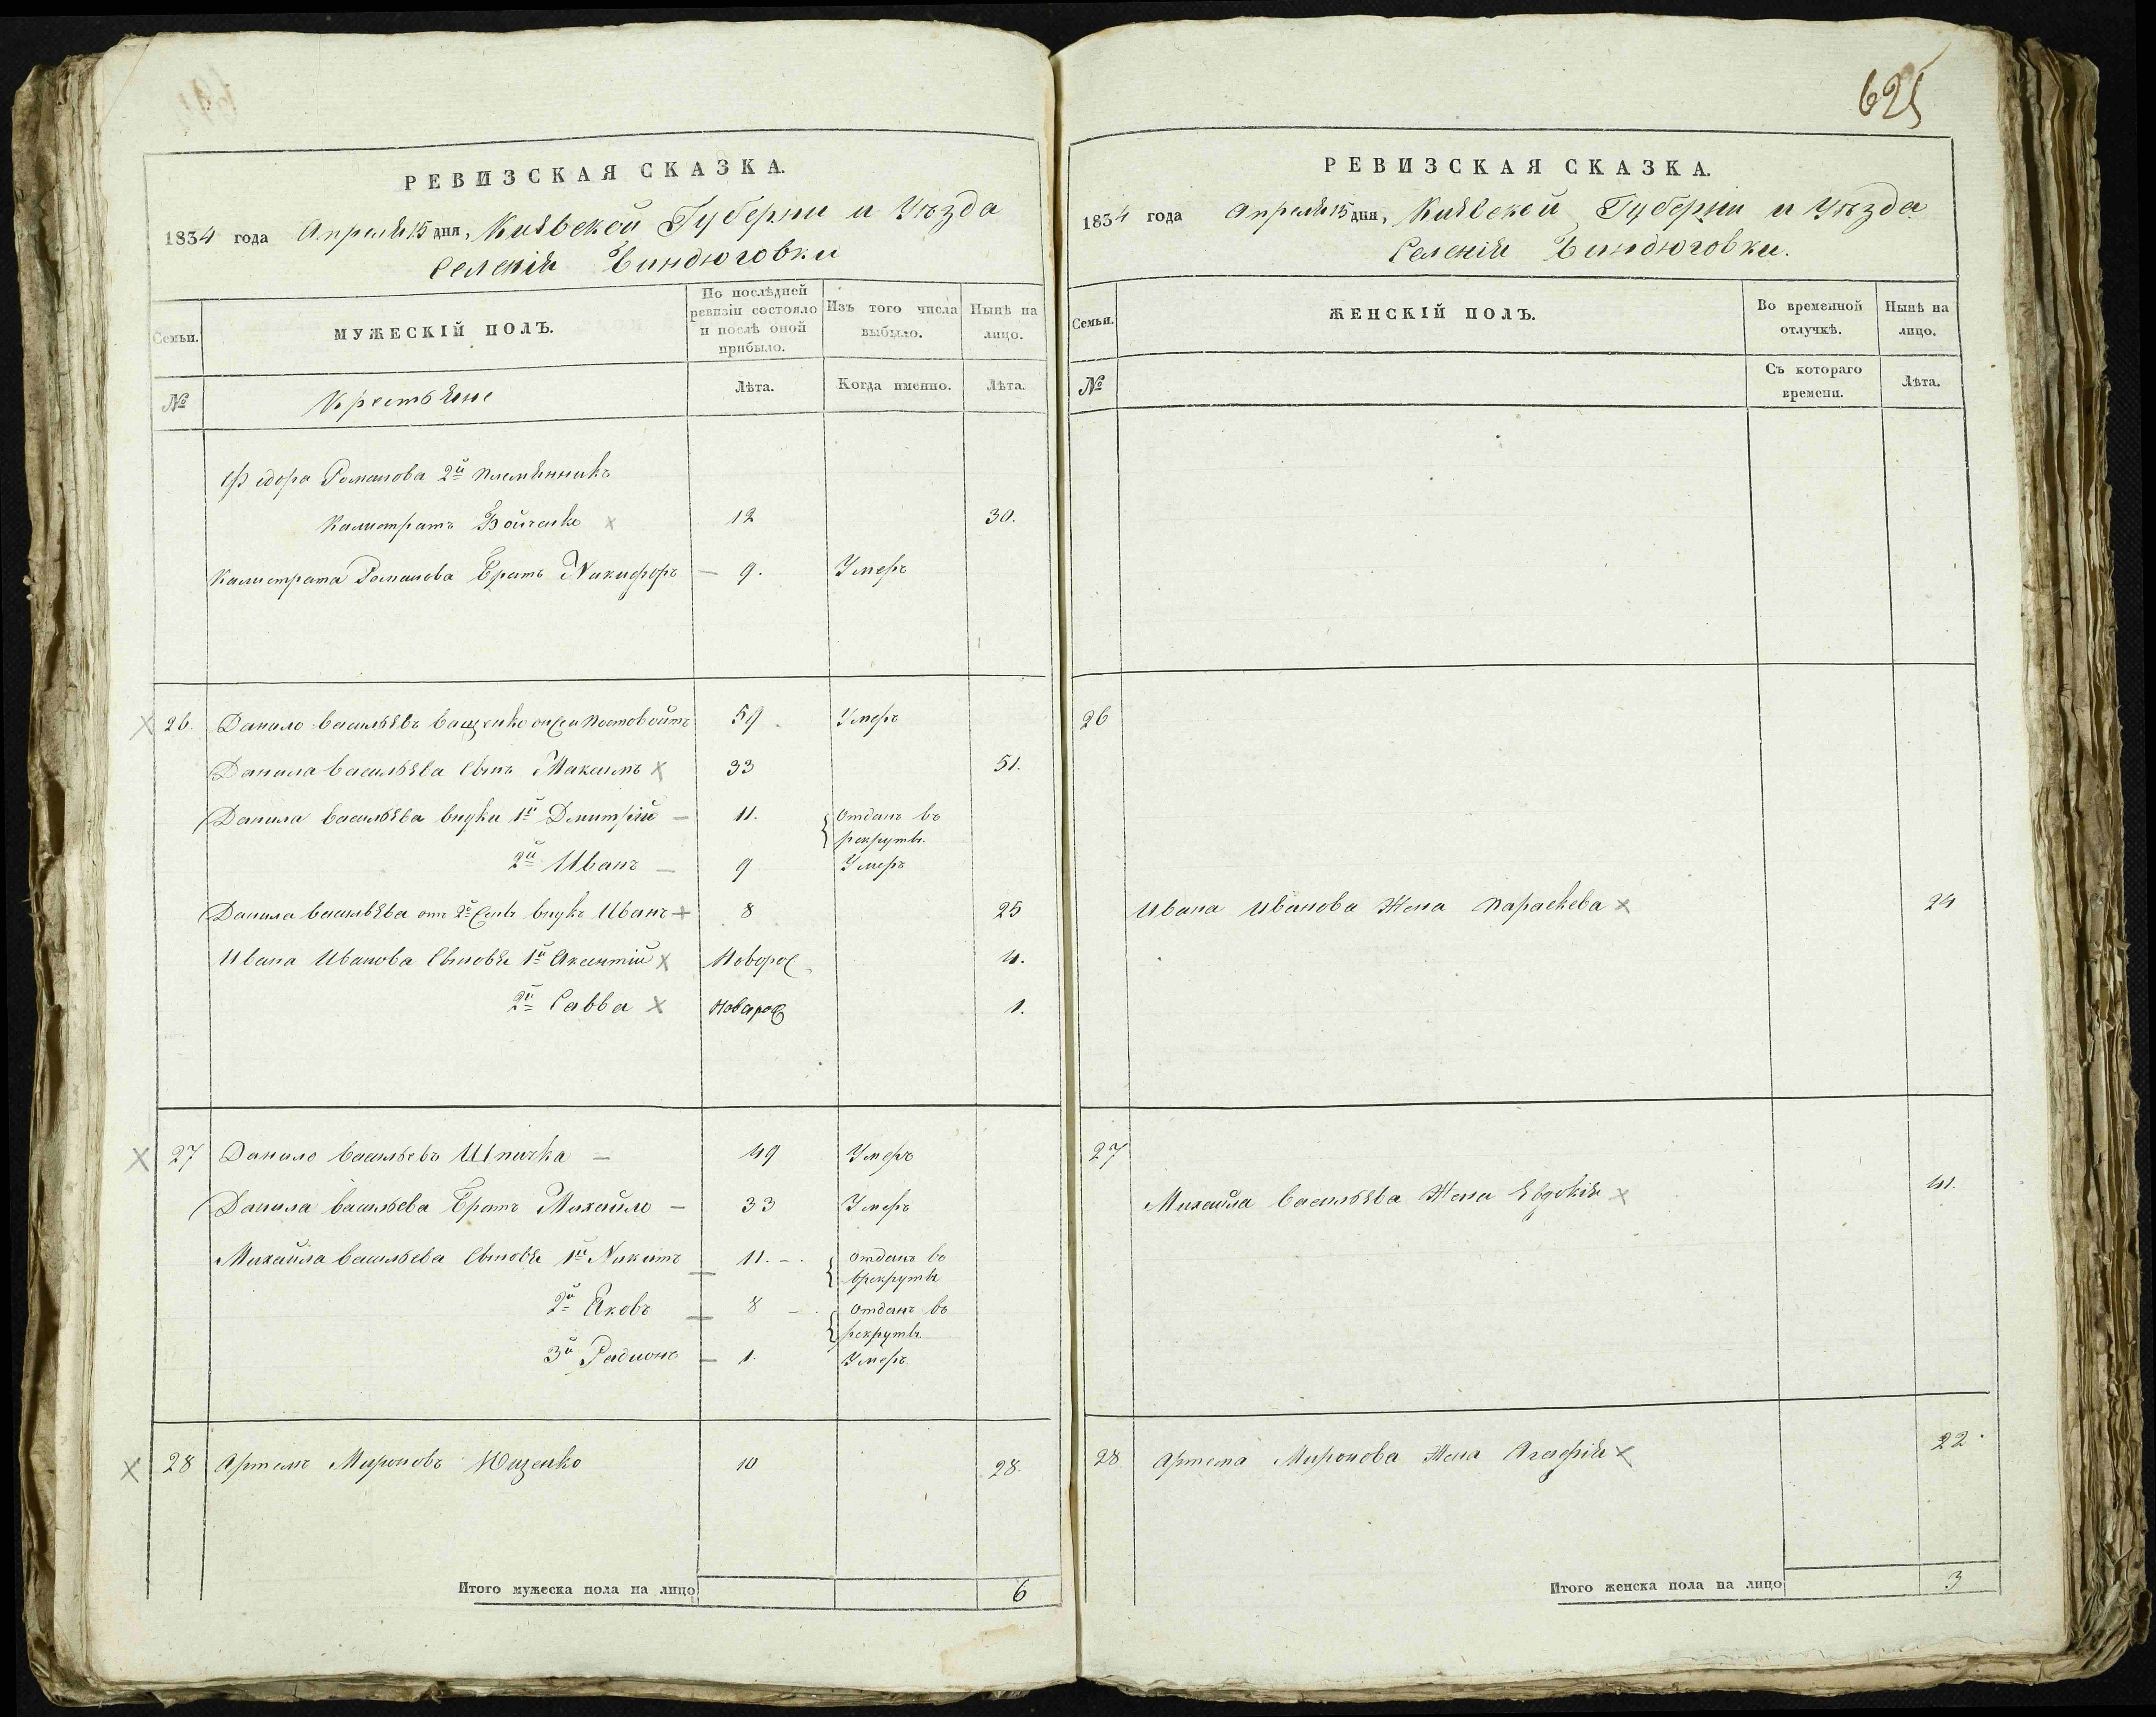 625
РЕВИЗСКАЯ СКАЗКА.
1834 года Апреля 15 дня, Киевской Губерни и Уѣзда
Селенія Биндюговки
Семьи.
МУЖЕСКІЙ ПОЛЪ.
По послѣдней ревизіи состояло и послѣ оной прибыло.
Изъ того числа выбыло.
Нынѣ на лицо.
№
Крестьяне
Лѣта.
Когда именно.
Лѣта.
Федора Романова 2й племянникъ
Калистратъ Бойченко 12 30.
Калистрата Романова Братъ Никифоръ 9. Умеръ
26. Данило Васильевъ Ващенко Постовойтъ 59 Умеръ
Данила Васильева Сынъ Максимъ 33 51.
Данила Васильева внуки 1й Дмитрій 11. отданъ въ
рекруты.
2й Иванъ 9 Умеръ
Данила Васильева отъ 2го Сына внукъ Иванъ 8 25
Ивана Иванова Сыновья 1й Аксентій Новорož 4.
2й Савва Новорож 1.
27 Данило Васильевъ Шпичка 49 Умеръ
Данила Васильева Братъ Михайло 33 Умеръ
Михайла Васильева Сыновья 1й Никита 11. отданъ во
врекруты
2й Яковъ 8 отданъ въ
рекруты
3й Радионъ 1. Умеръ.
28 Артемъ Мироновъ Ющенко 10 28.
Итого мужеска пола на лицо 6
РЕВИЗСКАЯ СКАЗКА.
1834 года Апреля 15 дня, Киевской Губерни и Уѣзда
Селенія Биндюговки.
Семьи.
ЖЕНСКІЙ ПОЛЪ.
Во временной отлучкѣ.
Нынѣ на лицо.
№
Съ котораго времени.
Лѣта.
26
Ивана Иванова Жена Параскева 24
27
Михайла Васильева Жена Евдокія 41.
28. Артема Миронова Жена Агафія 22
Итого женска пола на лицо 3